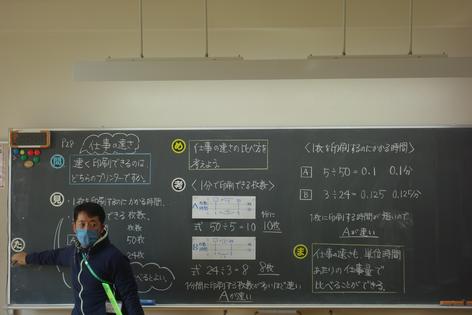 P28 仕事の速さ
問
速く印刷できるのは、
どちらのプリンターですか。
見
1枚を印刷するのにかかる時間
できる枚数
50枚
24枚
た
め
仕事の速さの比べ方を
考えよう。
考
〈1分で印刷できる枚数〉
A 枚数
時間
式 50÷5=10 10枚
枚数
時間
式 24÷3=8 8枚
1分間に印刷する枚数が多いほど速い
Aが速い
〈1枚を印刷するのにかかる時間〉
A 5÷50=0.1 0.1分
B 3÷24=0.125 0.125分
1枚に印刷する時間が短いので
Aが速い
ま
仕事の速さも、単位時間
あたりの仕事量で
比べることができる。